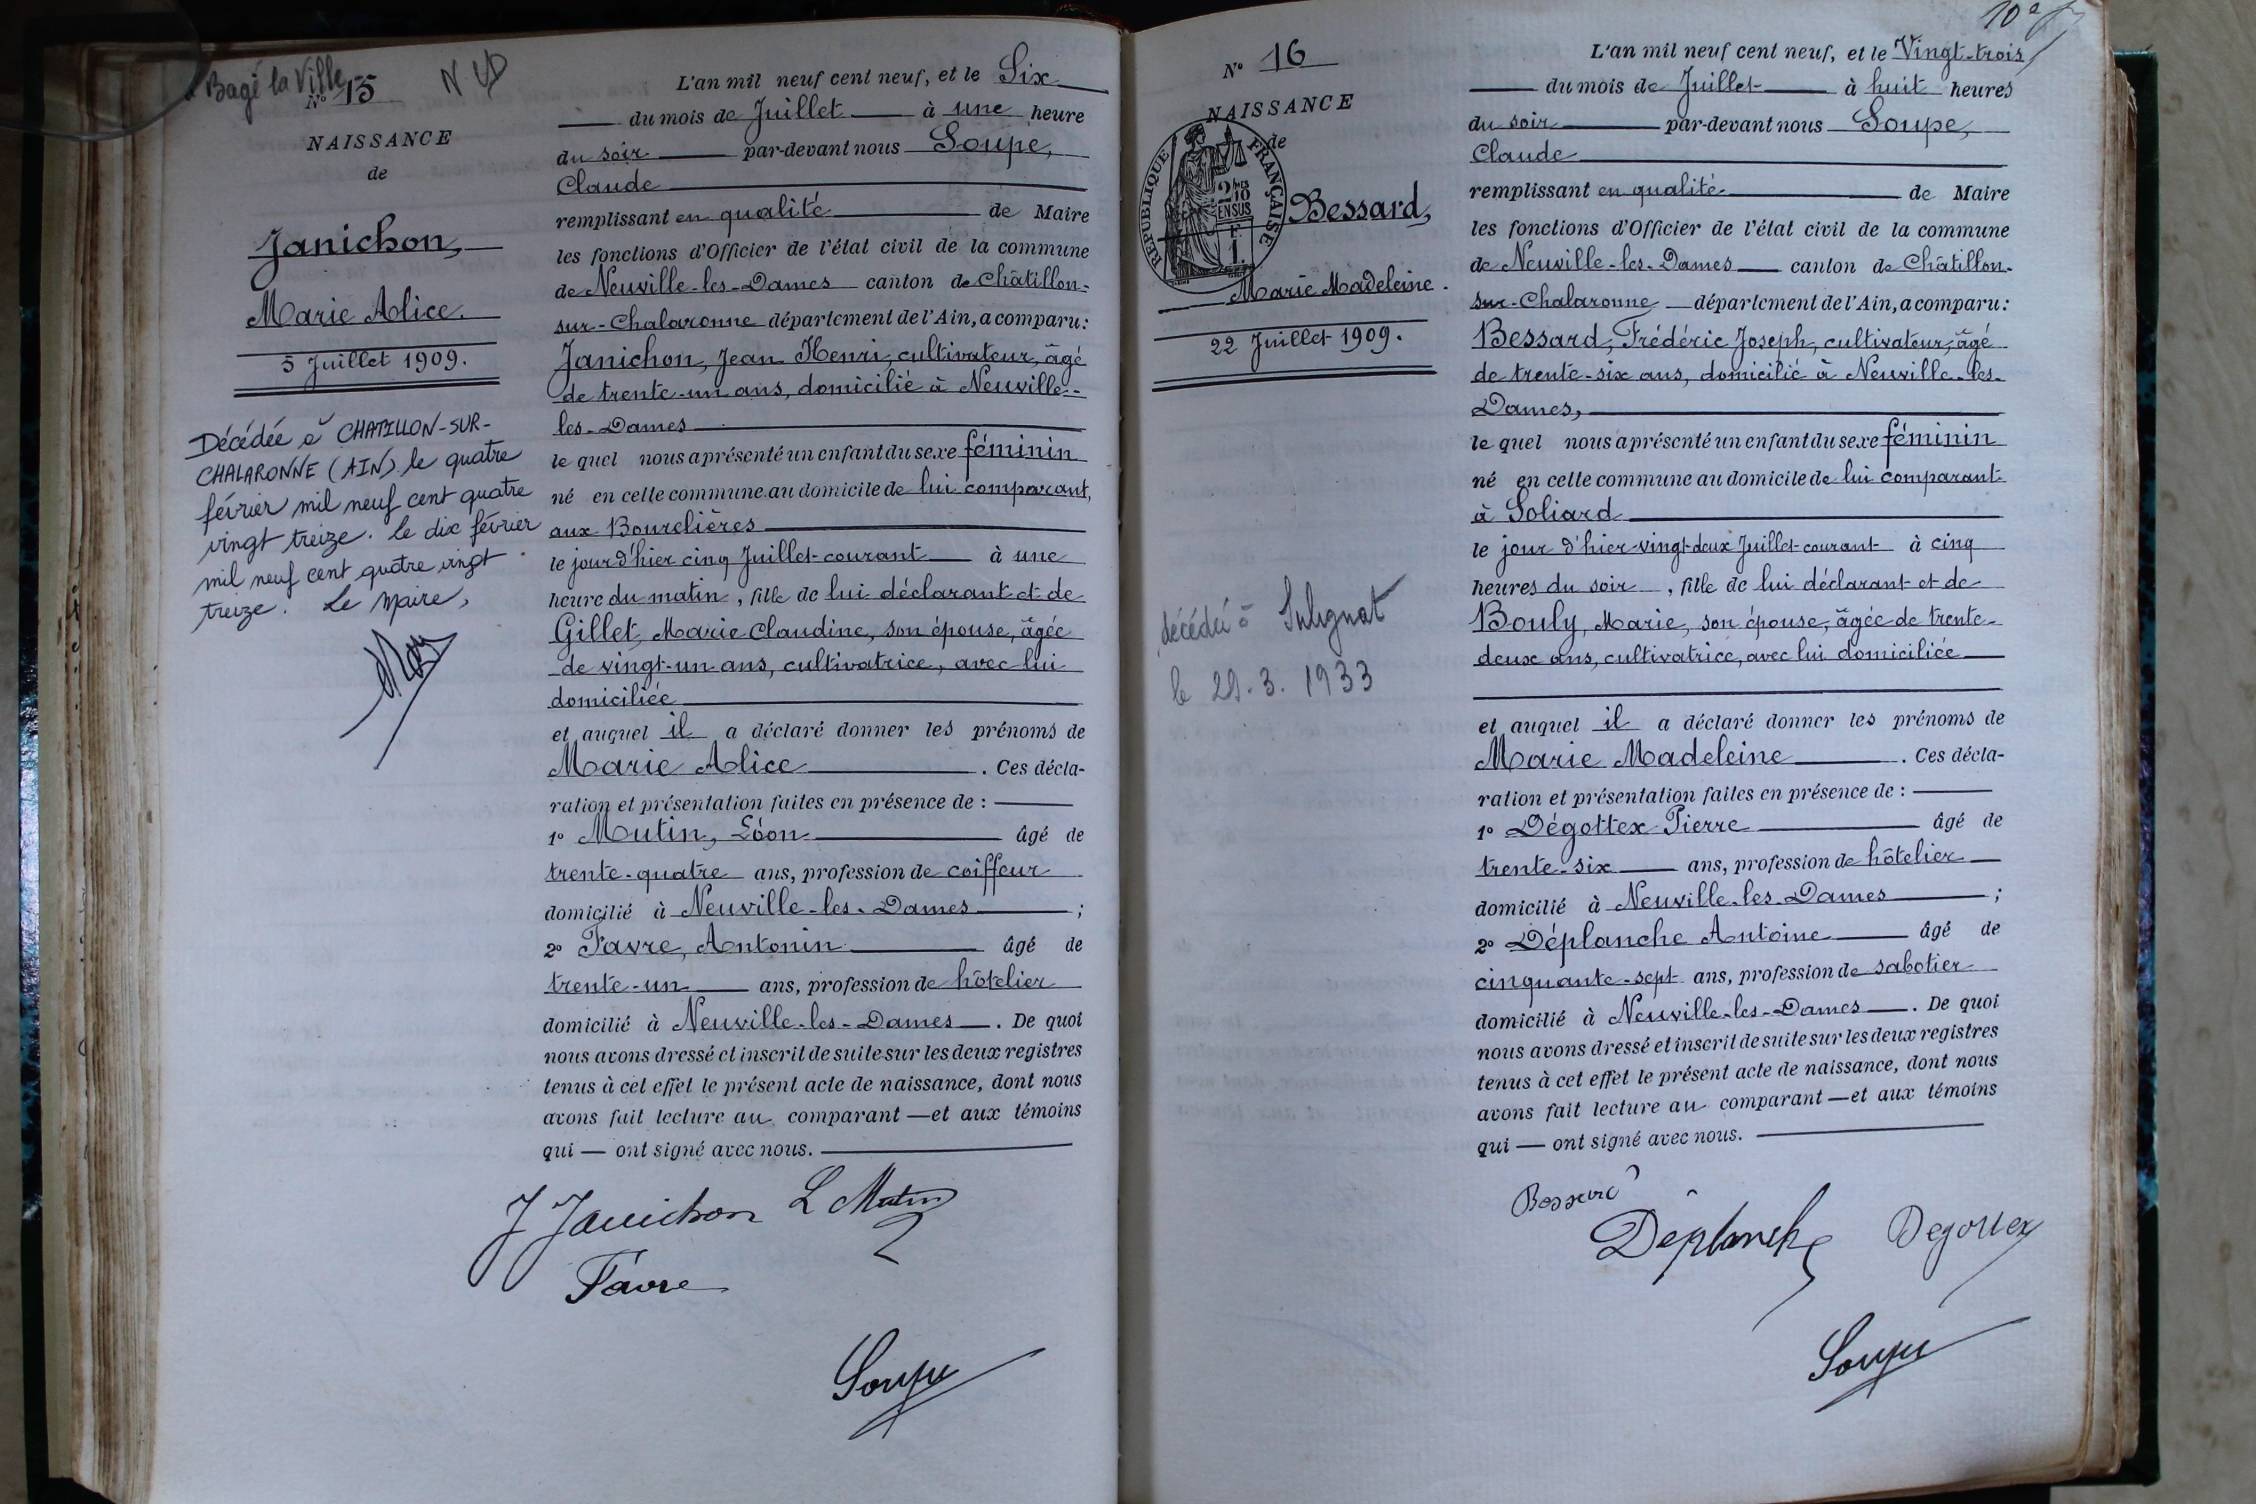 Bagé la Ville
N° 15
NAISSANCE
de
Janichon,
Marie Alice.
5 Juillet 1909.
Décédée à CHATILLON-SUR-
CHALARONNE (AIN) le quatre
février mil neuf cent quatre
vingt treize. le dix février
mil neuf cent quatre vingt
treize. Le Maire,
L'an mil neuf cent neuf, et le Six
du mois de Juillet à une heure
du soir par-devant nous Soupe,
Claude
remplissant en qualité de Maire
les fonctions d'Officier de l'état civil de la commune
de Neuville-les-Dames canton de Châtillon-
sur-Chalaronne département de l'Ain, a comparu:
Janichon, Jean Henri, cultivateur, âgé
de trente-un ans, domicilié à Neuville-
les-Dames
le quel nous a présenté un enfant du sexe féminin
né en celle commune au domicile de lui comparant,
aux Bourelières
le jour d'hier cinq Juillet courant à une
heure du matin, fille de lui déclarant et de
Gillet, Marie Claudine, son épouse, âgée
de vingt-un ans, cultivatrice, avec lui
domiciliée
et auquel il a déclaré donner les prénoms de
Marie Alice. Ces décla-
ration et présentation faites en présence de :
1° Mutin, Léon âgé de
trente-quatre ans, profession de coiffeur
domicilié à Neuville-les-Dames ;
2° Favre, Antonin âgé de
trente-un ans, profession de hôtelier
domicilié à Neuville-les-Dames. De quoi
nous avons dressé et inscrit de suite sur les deux registres
tenus à cet effet le présent acte de naissance, dont nous
avons fait lecture au comparant — et aux témoins
qui — ont signé avec nous.
J Janichon L Mutin
Favre
Soupe
N° 16
NAISSANCE
de
RÉPUBLIQUE FRANÇAISE
2/10
EN SUS
1 F.
Bessard,
Marie Madeleine.
22 Juillet 1909.
décédé à Sulignat
le 29.3.1933
L'an mil neuf cent neuf, et le Vingt-trois
du mois de Juillet à huit heures
du soir par-devant nous Soupe,
Claude
remplissant en qualité de Maire
les fonctions d'Officier de l'état civil de la commune
de Neuville-les-Dames canton de Châtillon-
sur-Chalaronne département de l'Ain, a comparu:
Bessard, Frédéric Joseph, cultivateur, âgé
de trente-six ans, domicilié à Neuville-les-
Dames,
le quel nous a présenté un enfant du sexe féminin
né en celle commune au domicile de lui comparant
à Soliard
le jour d'hier vingt-deux Juillet courant à cinq
heures du soir, fille de lui déclarant et de
Bouly, Marie, son épouse, âgée de trente-
deux ans, cultivatrice, avec lui domiciliée
et auquel il a déclaré donner les prénoms de
Marie Madeleine. Ces décla-
ration et présentation faites en présence de :
1° Dégottex Pierre âgé de
trente-six ans, profession de hôtelier
domicilié à Neuville-les-Dames ;
2° Déplanche Antoine âgé de
cinquante-sept ans, profession de sabotier
domicilié à Neuville-les-Dames. De quoi
nous avons dressé et inscrit de suite sur les deux registres
tenus à cet effet le présent acte de naissance, dont nous
avons fait lecture au comparant — et aux témoins
qui — ont signé avec nous.
Bessard
Déplanche Degottex
Soupe